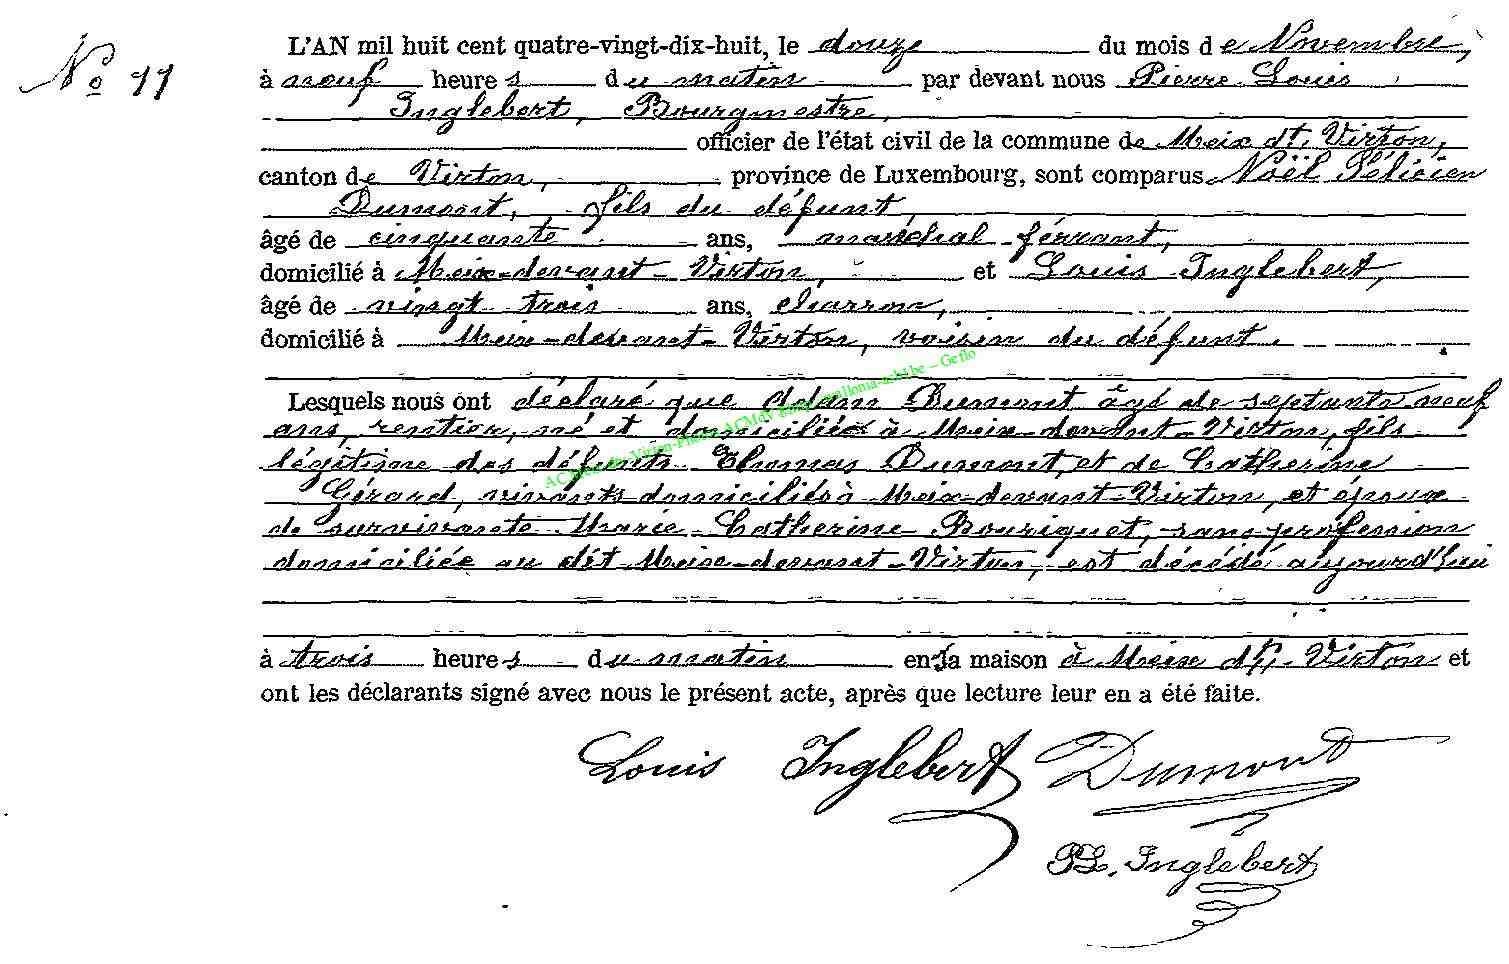 No 11
L'AN mil huit cent quatre-vingt-dix-huit, le douze du mois de Novembre,
à neuf heures du matin par devant nous Pierre Louis
Inglebert, Bourgmestre,
officier de l'état civil de la commune de Meix dt. Virton,
canton de Virton, province de Luxembourg, sont comparus Noël Félicien
Dumont, fils du défunt,
âgé de cinquante ans, maréchal ferrant,
domicilié à Meix-devant-Virton, et Louis Inglebert,
âgé de vingt trois ans, charron,
domicilié à Meix-devant-Virton, voisin du défunt.
Lesquels nous ont déclaré que Adam Dumont âgé de septante neuf
ans, rentier, né et domicilié à Meix-devant-Virton, fils
légitime des défunts Thomas Dumont, et de Catherine
Gérard, vivants domiciliés à Meix-devant-Virton, et époux
de survivante Marie Catherine Bouriguet, sans profession
domiciliée au dit Meix-devant-Virton, est décédé aujourd'hui
à trois heures du matin en sa maison à Meix dt. Virton et
ont les déclarants signé avec nous le présent acte, après que lecture leur en a été faite.
Louis Inglebert Dumont
PL. Inglebert